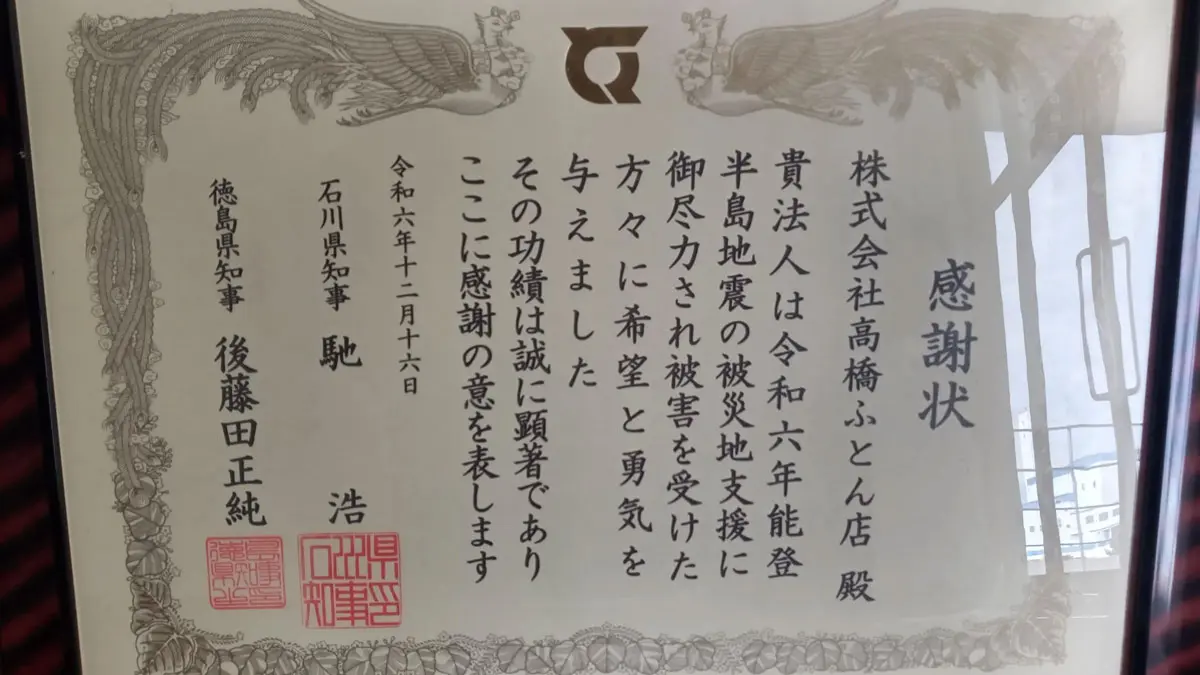 感謝状
株式会社高橋ふとん店 殿
貴法人は令和六年能登
半島地震の被災地支援に
御尽力され被害を受けた
方々に希望と勇気を
与えました
その功績は誠に顕著であり
ここに感謝の意を表します
令和六年十二月十六日
石川県知事 馳 浩
徳島県知事 後藤田正純